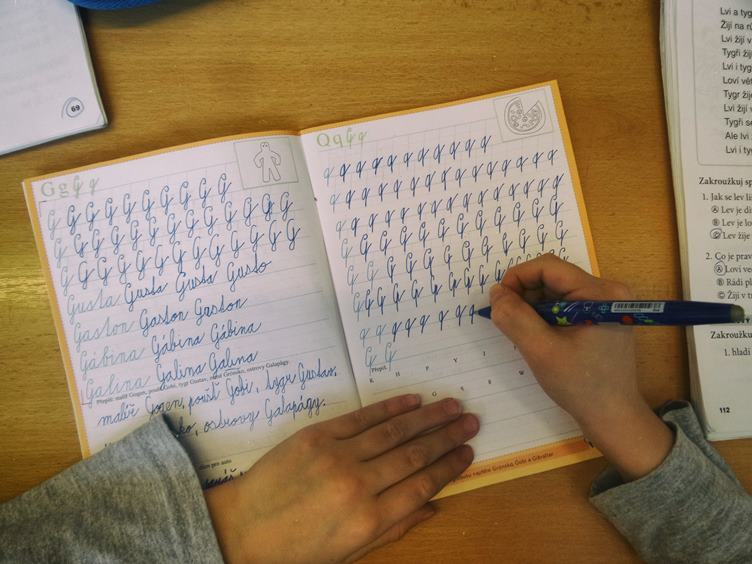 69
G g G g
G G G G G G G G G
G G G G G G G G G G
G G G G G G G G G G
Gusta Gusta Gusta Gusto
Gaston Gaston Gaston
Gábina Gábina Gábina
Galina Galina Galina
Přepiš: malíř Gogen, poušť Gobi, tygr Gustav, země Grónsko, ostrovy Galapágy.
malíř Gogen, poušť Gobi, tygr Gustav,
ostrovy Galapágy.
Q q Q q
q q q q q q q q q q q
q q q q q q q q q q q
q q q q q q q q q q q
G G G G G G G G G G
G G G G G G G G G G
G G G G G G G G G
q q q q q q q q
G G
Přepiš.
K H P Y I
G S R W
Grónsko, Gobi a Gibraltar
Lvi a tyg
Žijí na rů
Lvi žijí v
Tygři žij
Lvi i tyg
Loví vět
Tygr žije
Lvi žijí v
Tygři se
Ale lvi
Lvi i ty
Zakroužkuj sp
1. Jak se lev liš
A Lev je di
B Lev je lo
C Lev žije
2. Co je prav
A Loví v
B Rádi pl
C Žijí v
Zakroužku
1. hladí
112